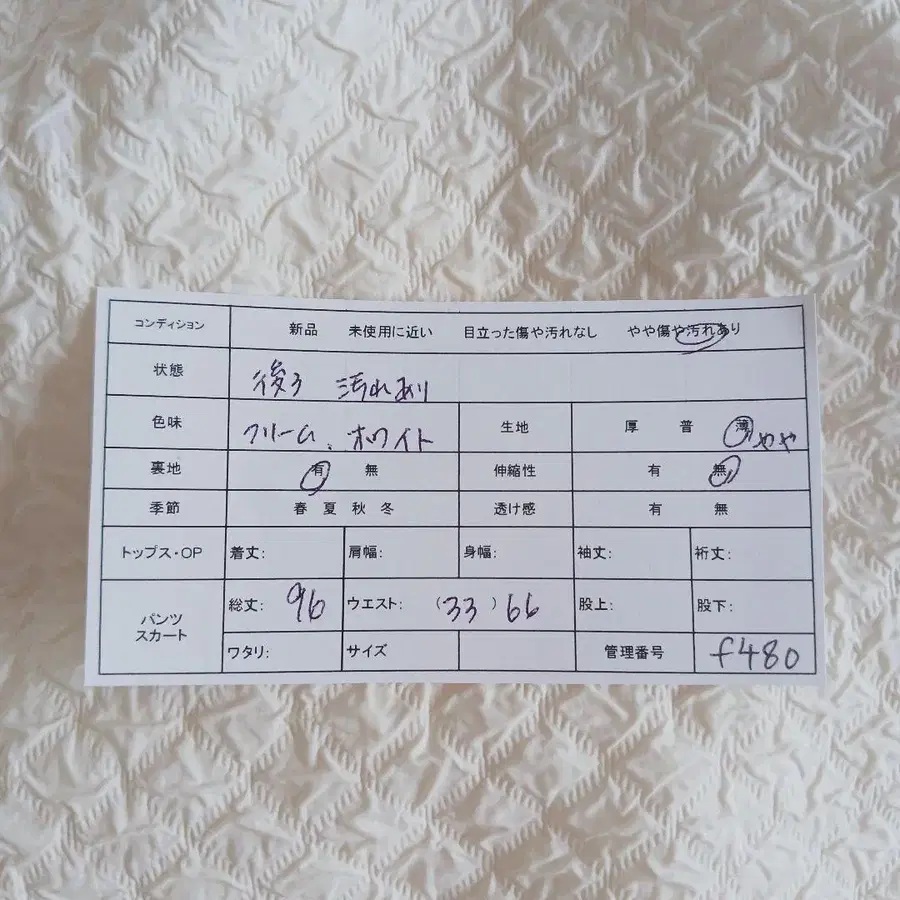 コンディション 新品 未使用に近い 目立った傷や汚れなし やや傷や汚れあり
状態 後ろ 汚れあり
色味 クリーム、ホワイト 生地 厚 普 薄 やや
裏地 有 無 伸縮性 有 無
季節 春 夏 秋 冬 透け感 有 無
トップス・OP 着丈: 肩幅: 身幅: 袖丈: 裄丈:
パンツ スカート 総丈: 96 ウエスト: (33) 66 股上: 股下:
ワタリ: サイズ 管理番号 f480